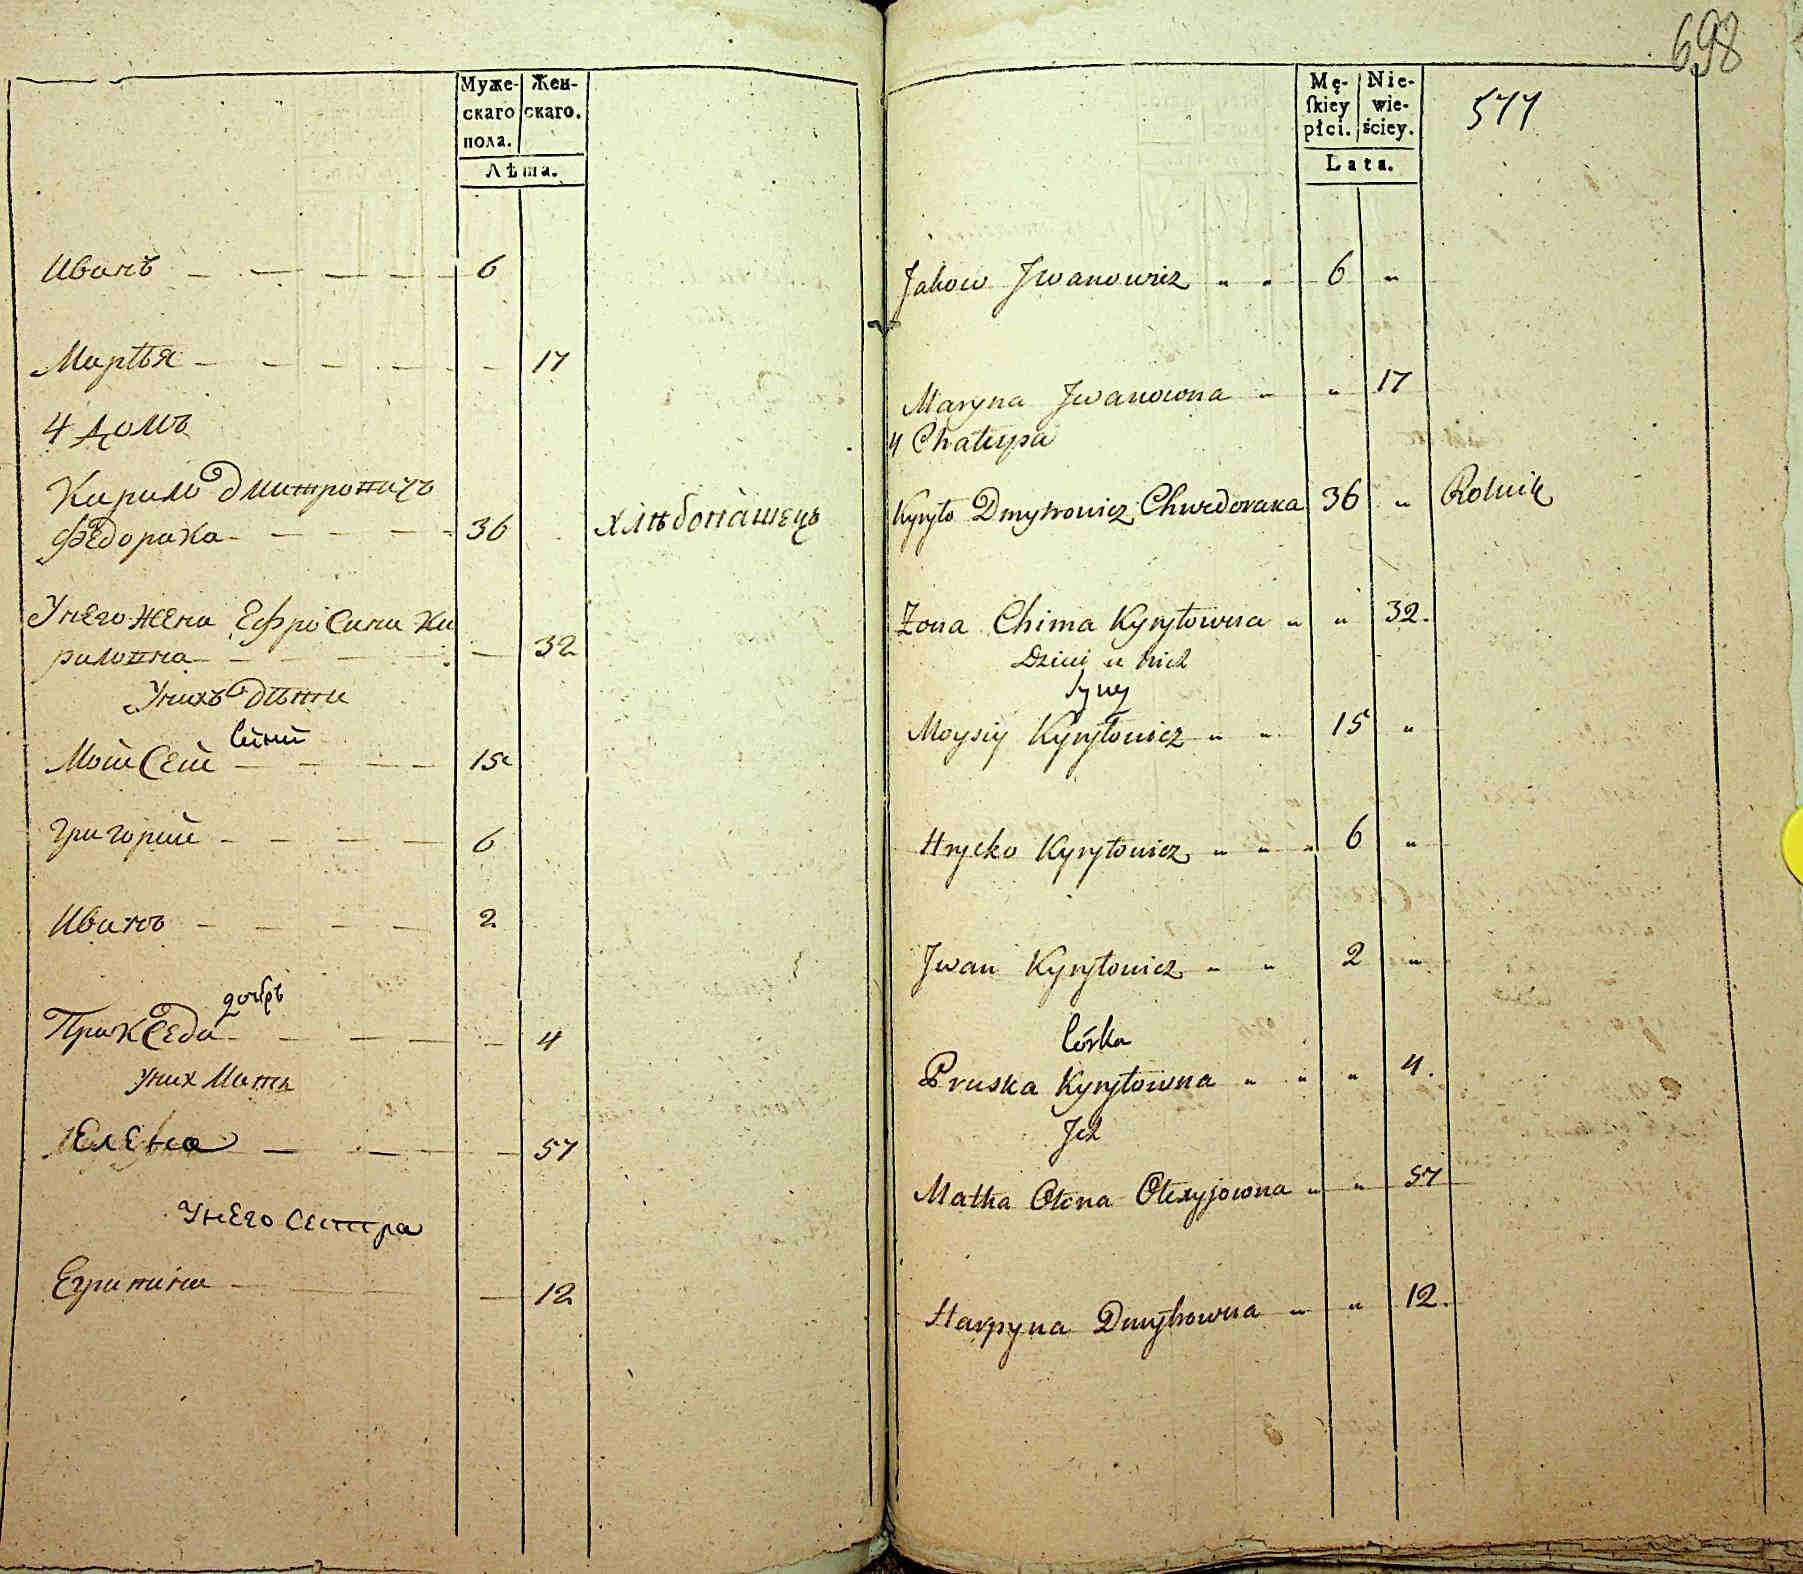 Муже-
скаго
пола.
Жен-
скаго.
Лѣта.
Иванъ 6
Марья 17
4 домъ
Кирило Дмитровичъ
Федорака 36 хлѣбопашецъ
У него жена Ефросина Ки
риловна 32
У нихъ дѣти
сины
Мойсей 15
Григорий 6
Иванъ 2
дочерь
Пракседа 4
у них мать
Елена 57
У него сестра
12
698
Mę-
ſkiey
płci.
Nie-
wie-
ściey.
577
Lata.
Jakow Jwanowicz " " 6 "
Maryna Jwanowna " " 17
4 Chałupa
Kyryło Dmytrowicz Chwedoraka 36 " Rolnik
Żona Chima Kyryłowna " " 32.
Dzieci u nich
Syny
Moysiy Kyryłowicz " " 15 "
Hrycko Kyryłowicz " " " 6 "
Jwan Kyryłowicz " " 2 "
Córka
Pruska Kyryłowna " " " 4.
Jch
Matka Ołena Ołexyjowna " " 57
Harpyna Dmytrowna " " 12.